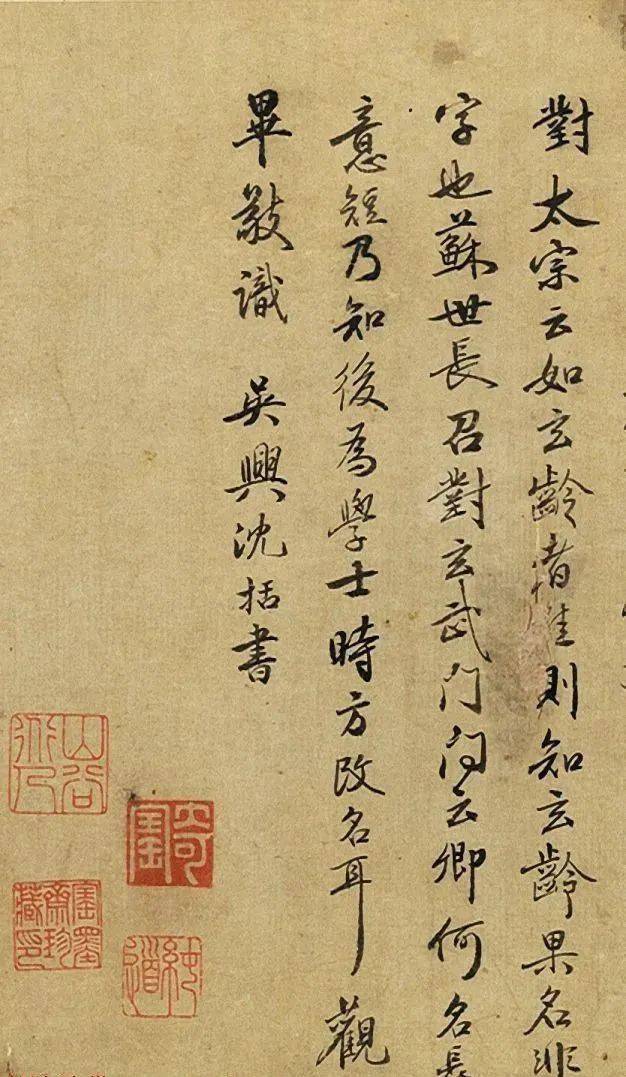 對太宗云如玄齡者惟則知玄齡果名非
字也蘇世長召對玄武門問云卿何名長
意短乃知後為學士時方改名耳觀
畢敬識 吳興沈括書
山谷
寶墨齋珍藏印